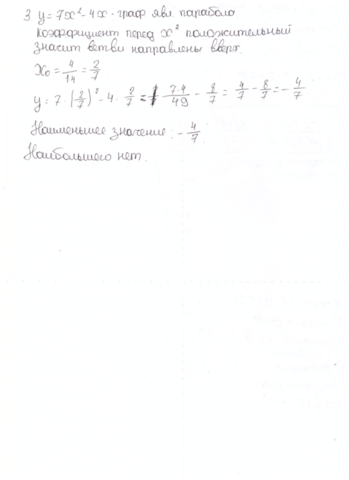 3 y = 7x² - 4x - граф явл. парабола
Коэффициент перед x² положительный
значит ветви направлены вверх.
X₀ = 4/14 = 2/7
y = 7 · (2/7)² - 4 · 2/7 = 7·4/49 - 8/7 = 4/7 - 8/7 = - 4/7
Наименьшее значение: - 4/7
Наибольшего нет.